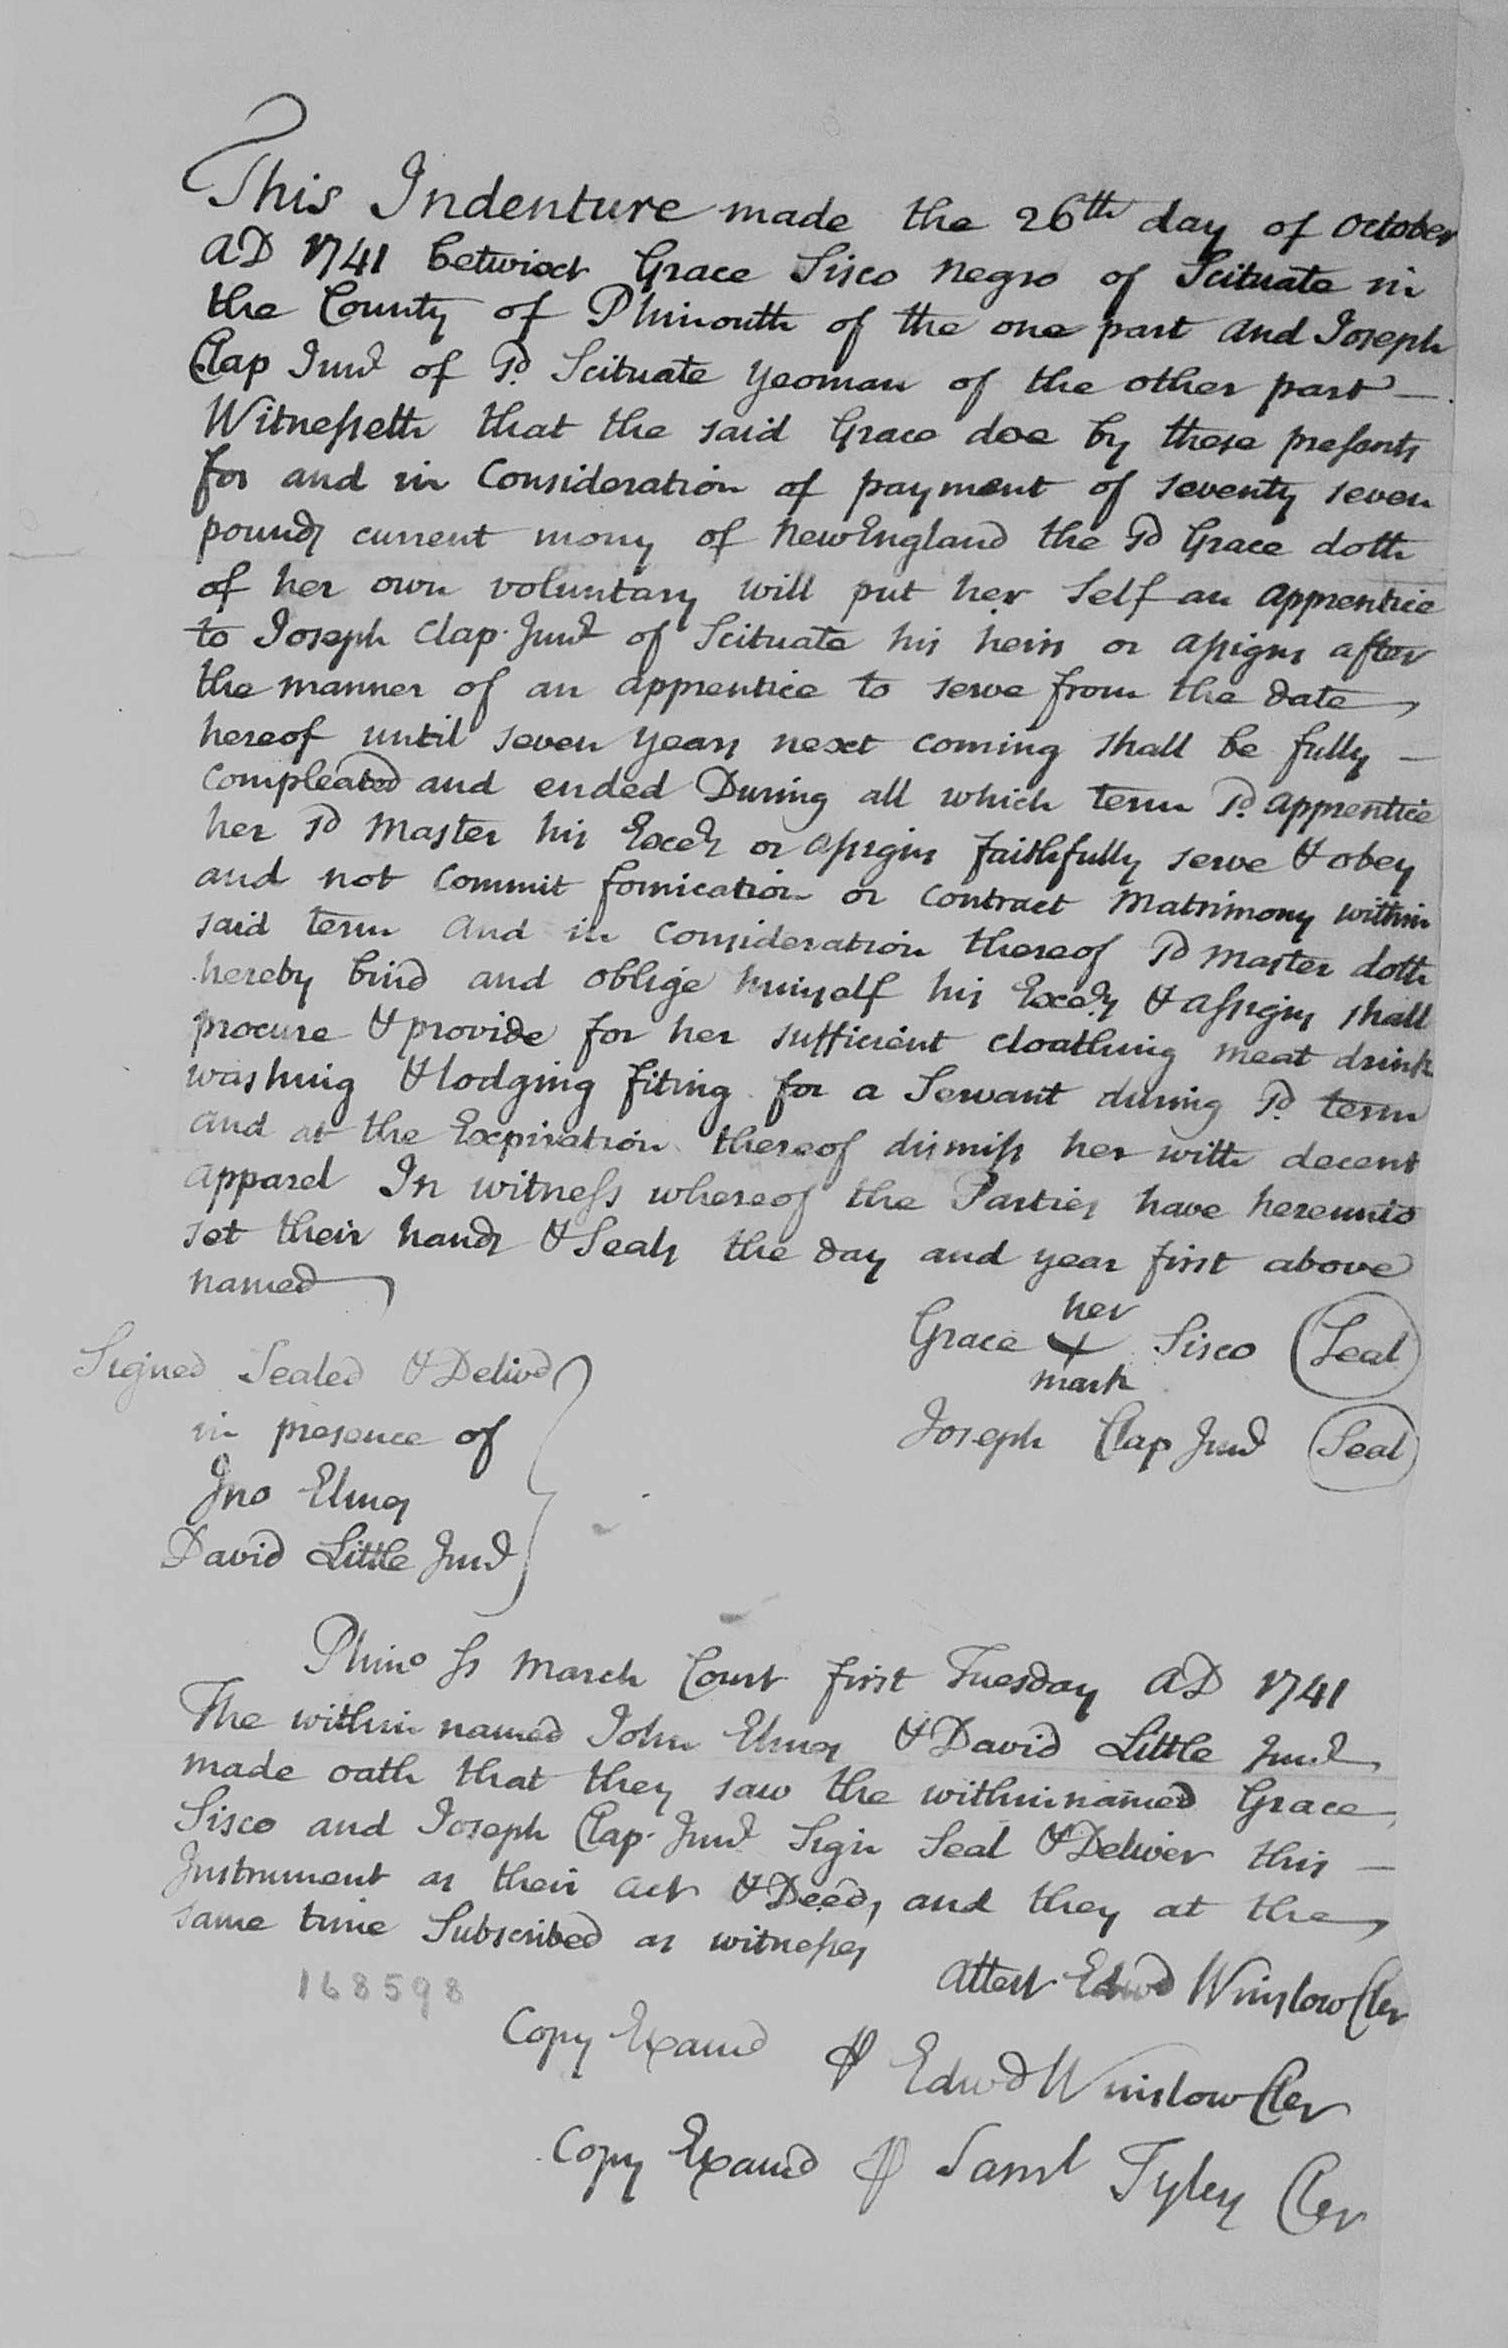 This Indenture made the 26th day of October
AD 1741 betwixt Grace Sisco Negro of Scituate in
the County of Plimouth of the one part and Joseph
Clap Junr of Sd. Scituate yeoman of the other part —
Witnesseth that the said Grace doe by these presents
for and in Consideration of payment of seventy seven
pounds current mony of NewEngland the Sd Grace doth
of her own voluntary will put her Self an apprentice
to Joseph Clap Junr of Scituate his heirs or assigns after
the manner of an apprentice to serve from the date
hereof until seven years next coming shall be fully —
Compleated and ended During all which term Sd. apprentice
her Sd Master his Execrs or assigns faithfully serve & obey
and not Commit fornication or Contract Matrimony within
said term And in Consideration thereof Sd Master doth
hereby bind and oblige himself his Execrs & assigns shall
procure & provide for her sufficient cloathing meat drink
washing & lodging fiting for a Servant during Sd. term
and at the Expiration thereof dismiss her with decent
apparel In witness whereof the Parties have hereunto
set their hands & Seals the day and year first above
named
her
Grace + Sisco Seal
mark
Joseph Clap Junr Seal
Signed Sealed & Delivd
in presence of
Jno Elmes
David Little Junr
Plimo Ss March Court first Tuesday AD 1741
The within named John Elmes & David Little Junr
made oath that they saw the within named Grace
Sisco and Joseph Clap Junr Sign Seal & Deliver this —
Instrument as their act & Deed, and they at the
same time Subscribed as witnesses
Attest Edwd Winslow Cler
168598
Copy Examd P Edwd Winslow Cler
Copy Examd P Saml Tyley Cler